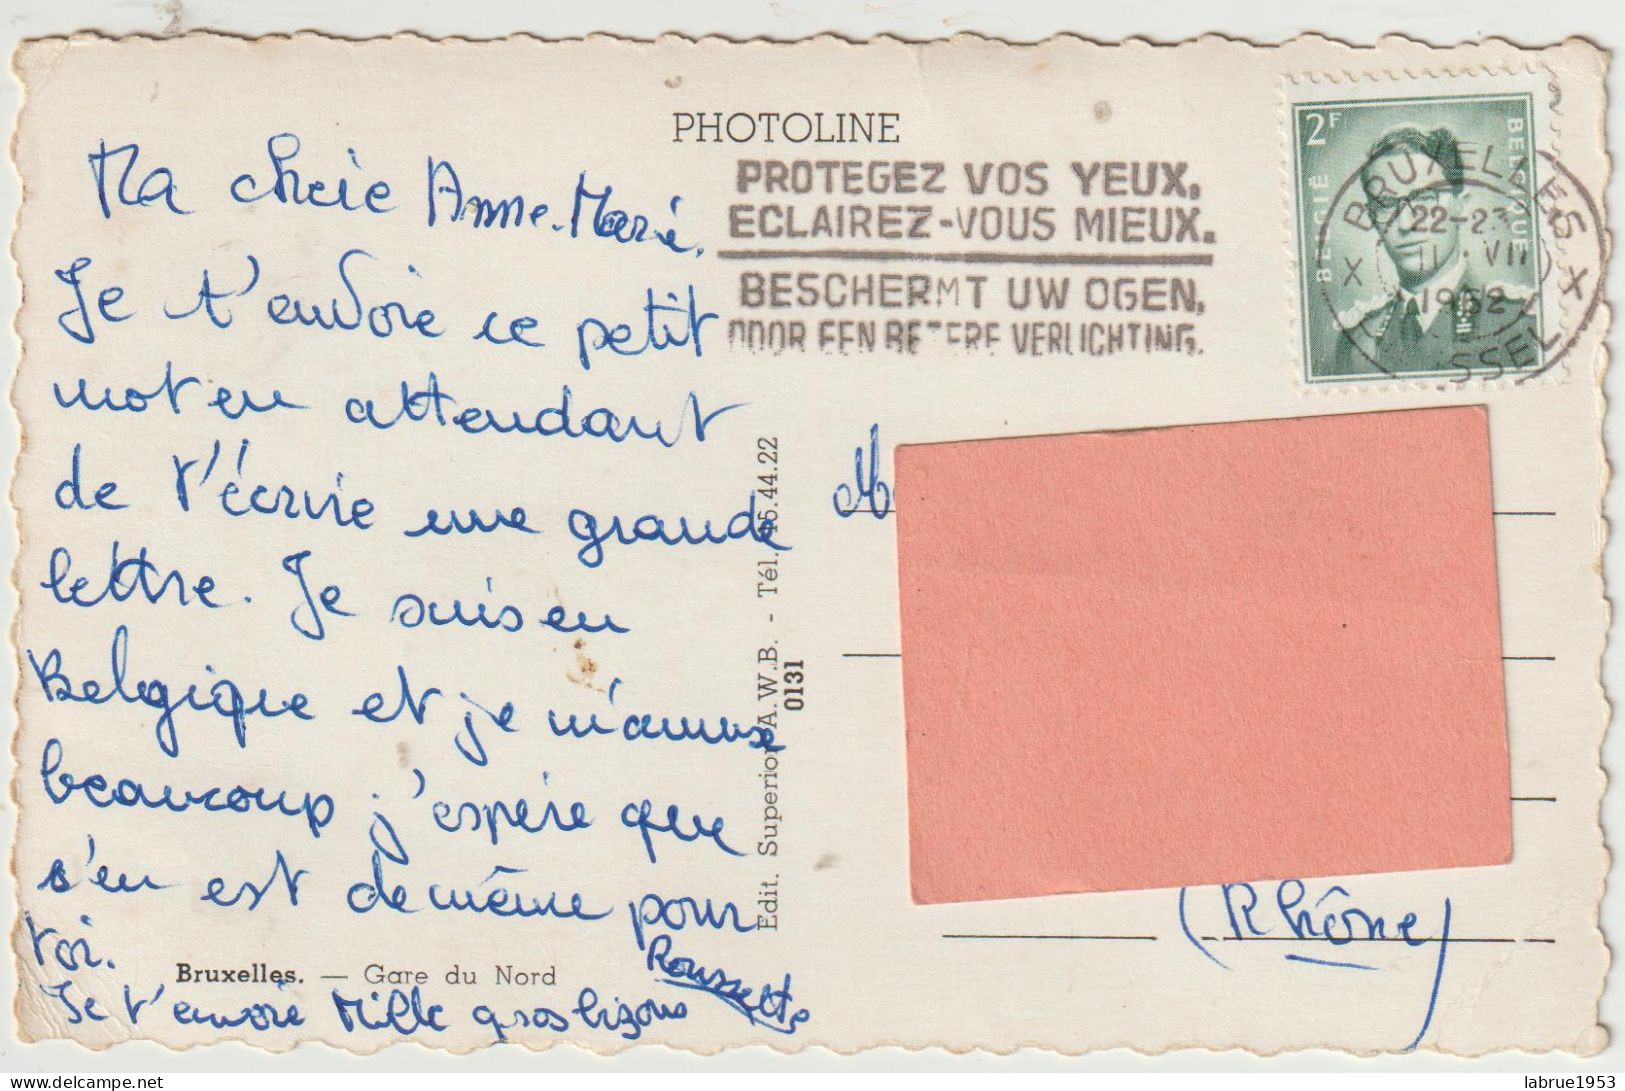 PHOTOLINE
PROTEGEZ VOS YEUX.
ECLAIREZ-VOUS MIEUX.
BESCHERMT UW OGEN.
DOOR EEN BETERE VERLICHTING.
2F
BELGIË
BELGIQUE
BRUXELLES
22-23
VII
1962
X X
Ma cherie Anne-Marie.
Je t'envoie ce petit
mot en attendant
de t'écrire une grande
lettre. Je suis en
Belgique et je m'amuse
beaucoup j'espère que
s'en est de même pour
toi.
Je t'envoie Mille gros bizous
Roussette
Bruxelles. — Gare du Nord
Edit. Superior A.W.B. - Tél. 15.44.22
0131
(Rhône)
delcampe.net
labrue1953